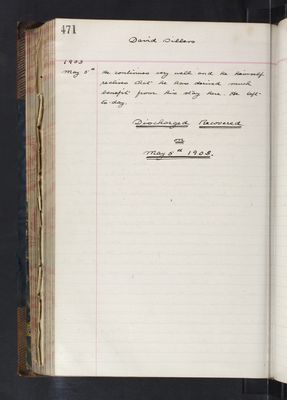 471
David Sillars
1903
May 5th He continues very well and he himself
realises that he has derived much
benefit from his stay here. He left
to-day.
Discharged Recovered
May 5th 1903.